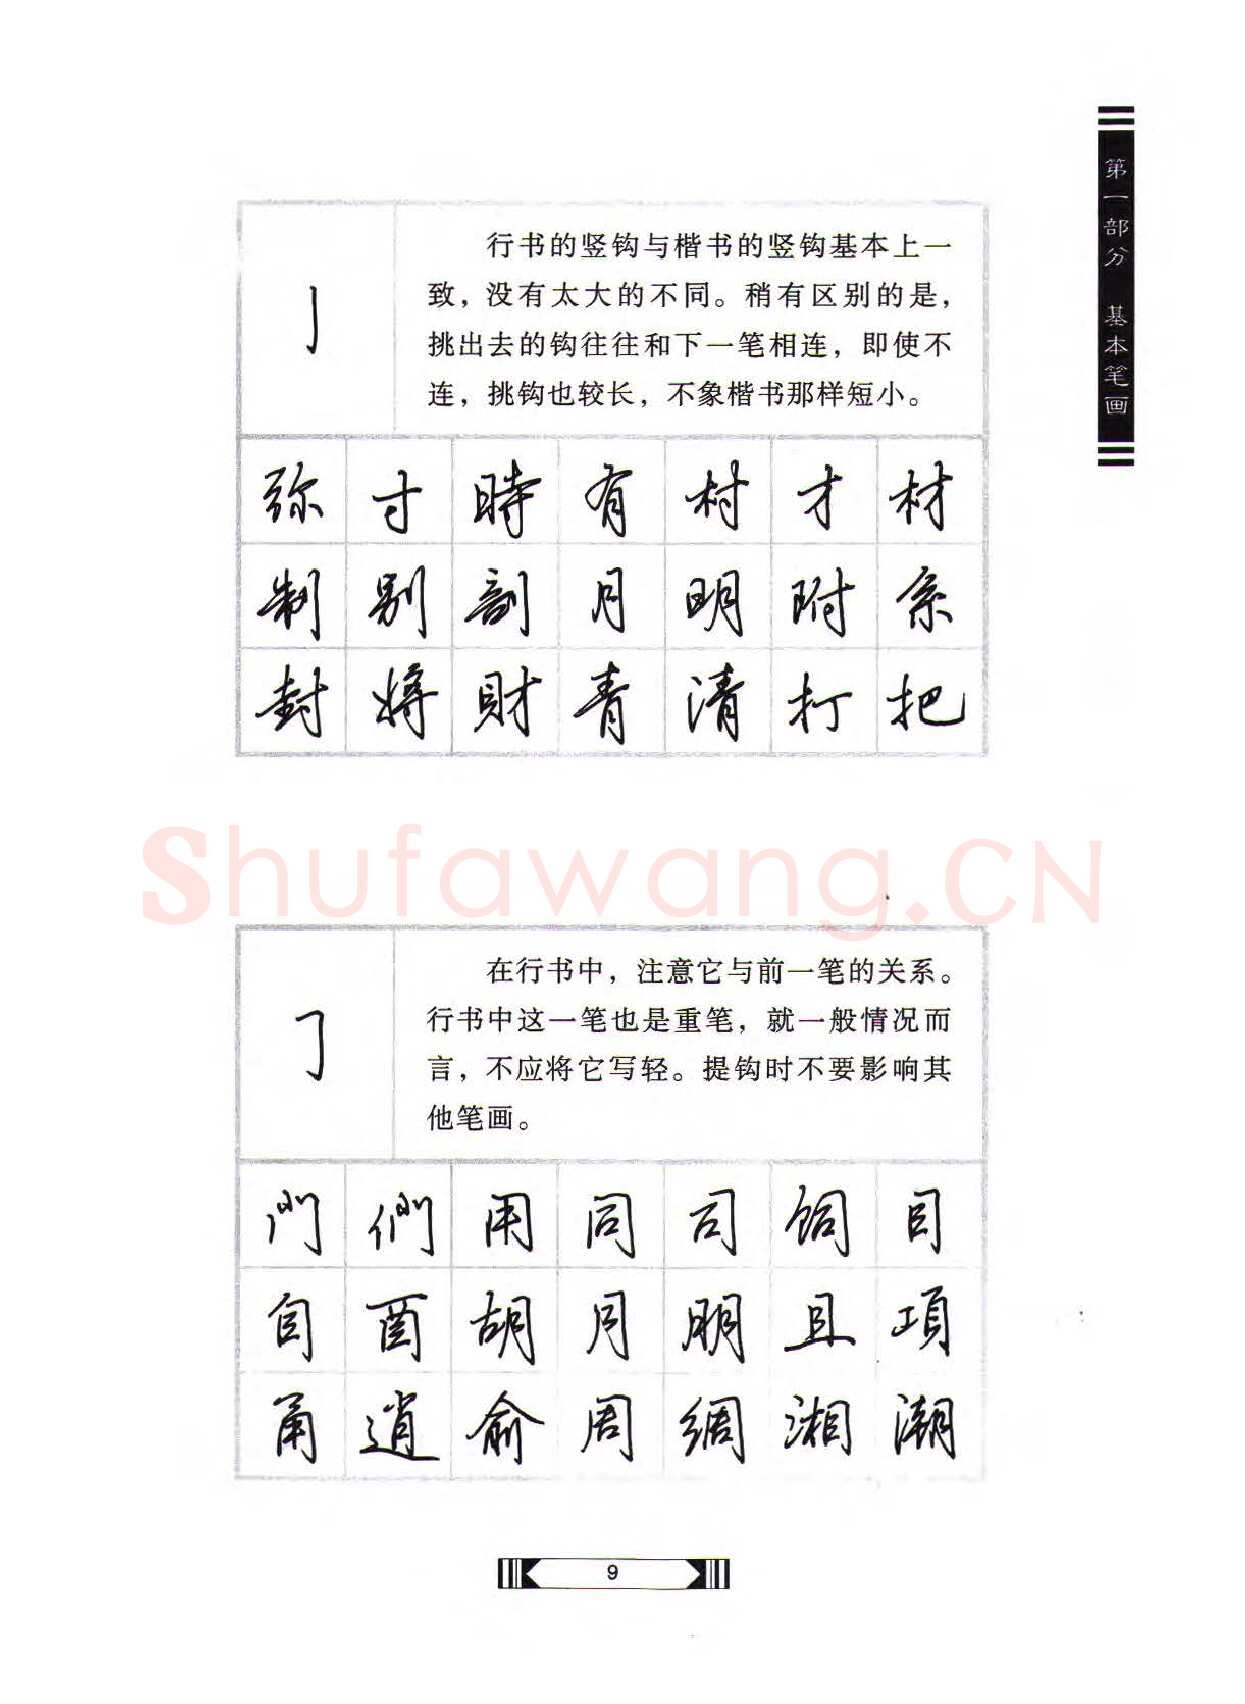 第一部分 基本笔画
亅
行书的竖钩与楷书的竖钩基本上一
致，没有太大的不同。稍有区别的是，
挑出去的钩往往和下一笔相连，即使不
连，挑钩也较长，不象楷书那样短小。
弥 寸 時 有 村 才 材
制 别 剖 月 明 附 系
封 將 財 青 清 打 把
Shufawang.CN
𠃌
在行书中，注意它与前一笔的关系。
行书中这一笔也是重笔，就一般情况而
言，不应将它写轻。提钩时不要影响其
他笔画。
門 們 用 同 司 饲 目
自 酉 胡 月 明 且 項
甬 逍 俞 周 绸 湘 潮
9